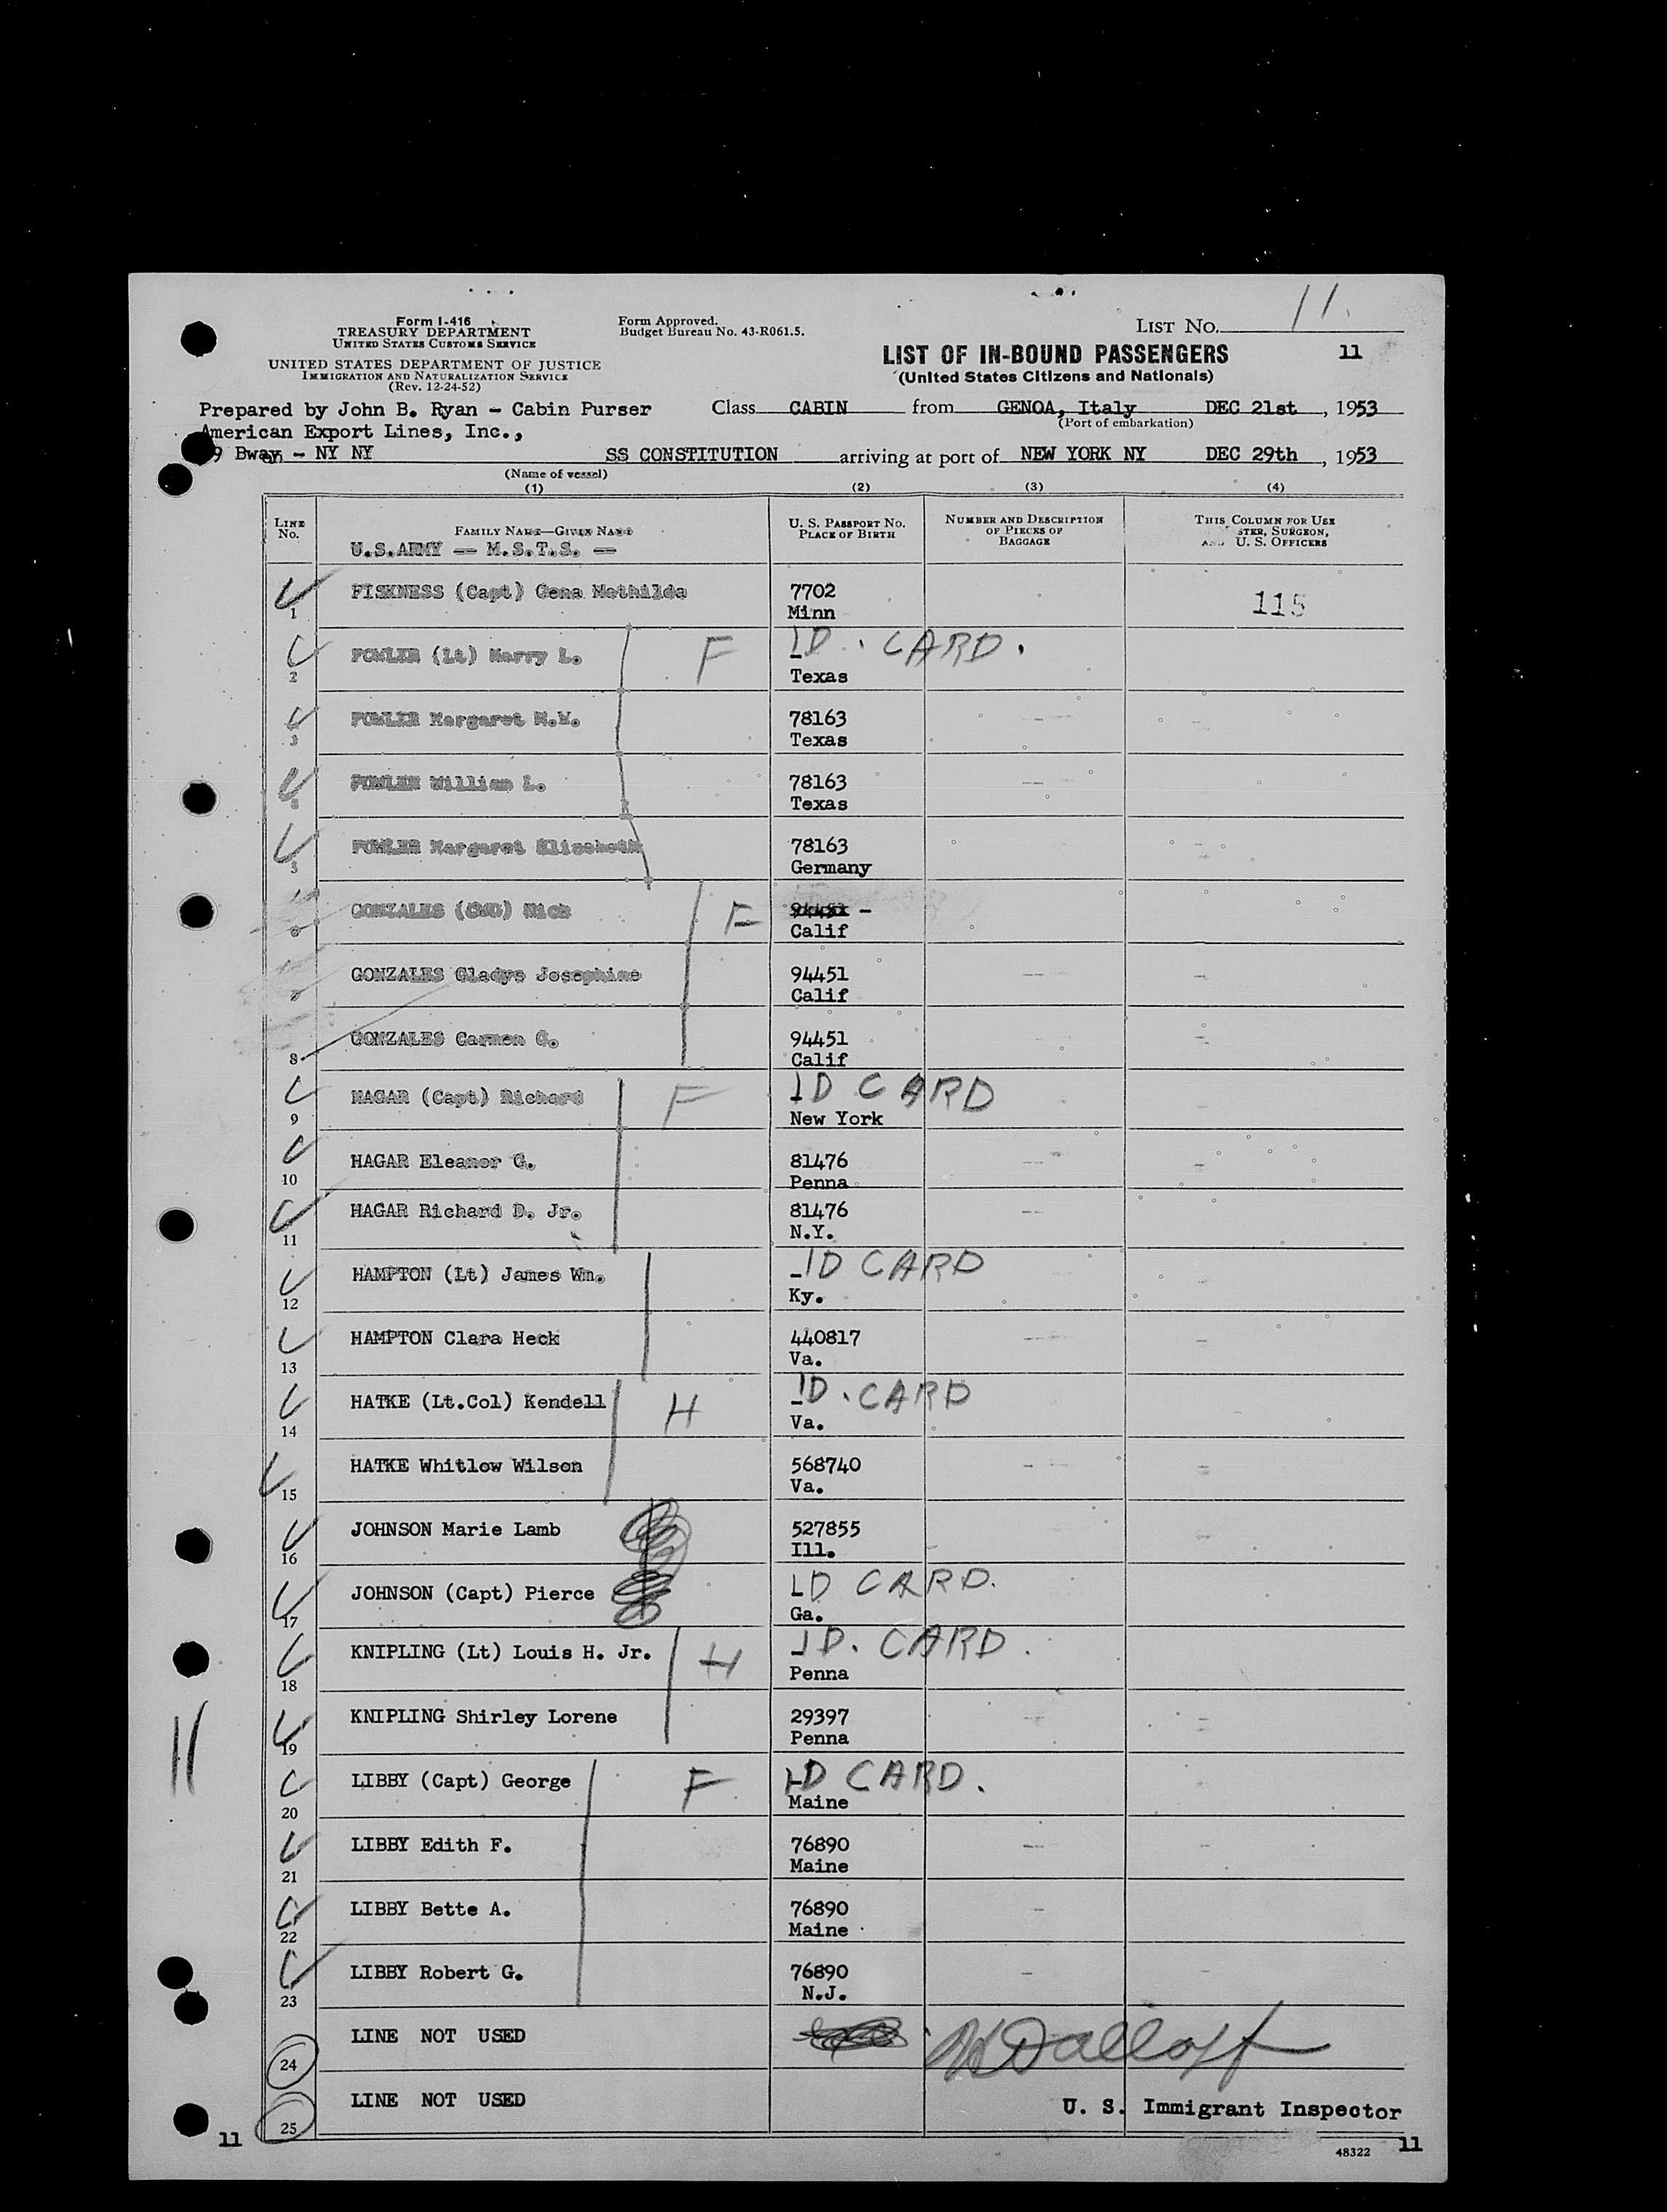 Form I-416
TREASURY DEPARTMENT
UNITED STATES CUSTOMS SERVICE
UNITED STATES DEPARTMENT OF JUSTICE
IMMIGRATION AND NATURALIZATION SERVICE
(Rev. 12-24-52)
Form Approved.
Budget Bureau No. 43-R061.5.
LIST NO. 11.
LIST OF IN-BOUND PASSENGERS 11
(United States Citizens and Nationals)
Prepared by John B. Ryan - Cabin Purser Class CABIN from GENOA, Italy DEC 21st, 1953
(Port of embarkation)
American Export Lines, Inc.,
9 Bway - NY NY SS CONSTITUTION arriving at port of NEW YORK NY DEC 29th, 1953
(Name of vessel)
(1) (2) (3) (4)
LINE No. FAMILY NAME—GIVEN NAME U. S. PASSPORT NO. PLACE OF BIRTH NUMBER AND DESCRIPTION OF PIECES OF BAGGAGE THIS COLUMN FOR USE STER, SURGEON, AND U. S. OFFICERS
U.S.ARMY -- M.S.T.S. --
1 FISKNESS (Capt) Gena Mathilda 7702 Minn 115
2 FOWLER (Lt) Harry L. F ID. CARD. - Texas
3 FOWLER Margaret M.W. 78163 Texas
4 FOWLER William L. 78163 Texas
5 FOWLER Margaret Elizabeth 78163 Germany
6 GONZALES (CWO) Nick F 94451 - Calif
7 GONZALES Gladys Josephine 94451 Calif
8 GONZALES Carmen G. 94451 Calif
9 HAGAR (Capt) Richard F ID CARD New York
10 HAGAR Eleanor G. 81476 Penna
11 HAGAR Richard D. Jr. 81476 N.Y.
12 HAMPTON (Lt) James Wm. - ID CARD Ky.
13 HAMPTON Clara Heck 440817 Va.
14 HATKE (Lt.Col) Kendell H - ID. CARD Va.
15 HATKE Whitlow Wilson 568740 Va.
16 JOHNSON Marie Lamb 527855 Ill.
17 JOHNSON (Capt) Pierce ID CARD. Ga.
18 KNIPLING (Lt) Louis H. Jr. H ID. CARD. Penna
19 KNIPLING Shirley Lorene 29397 Penna
20 LIBBY (Capt) George F ID CARD. Maine
21 LIBBY Edith F. 76890 Maine
22 LIBBY Bette A. 76890 Maine
23 LIBBY Robert G. 76890 N.J.
24 LINE NOT USED
25 LINE NOT USED
U. S. Immigrant Inspector
11 48322 11
11